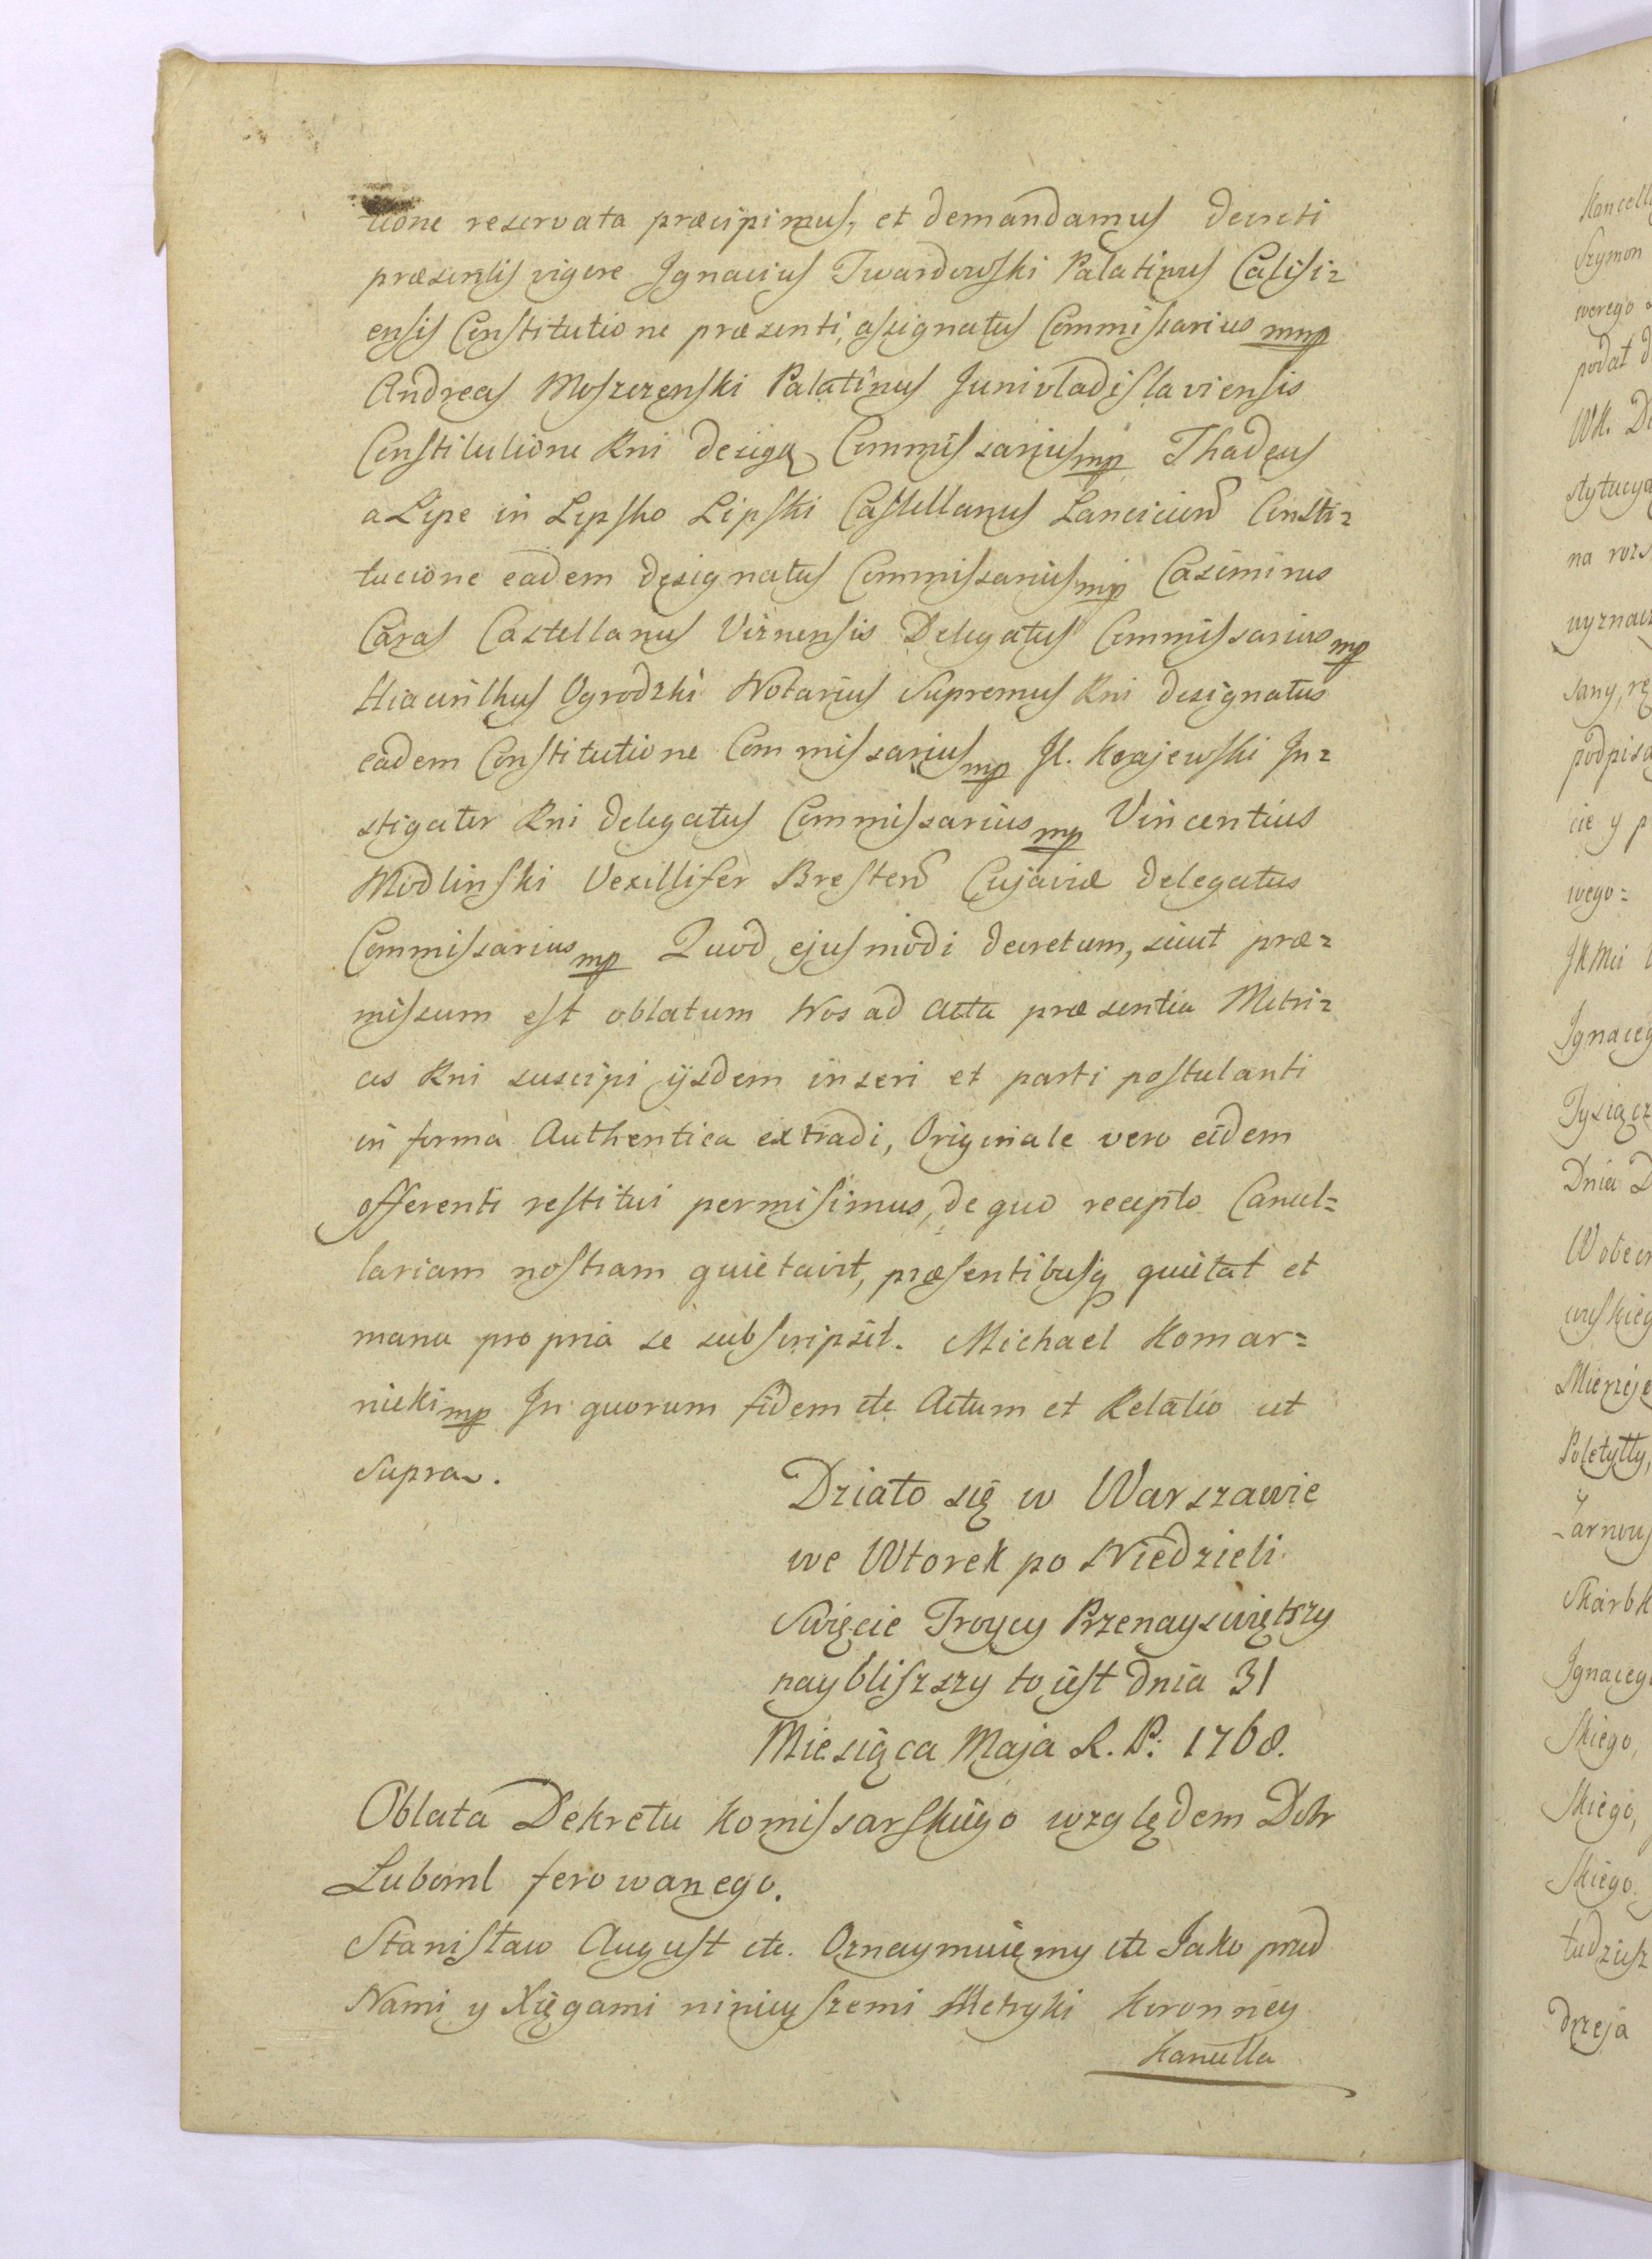 tione reservata præcipimus, et demandamus decreti
præsentis vigore Ignacius Twardowski Palatinus Calisi=
ensis Constitutione præsenti, assignatus Commissarius mp
Andreas Moszczenski Palatinus Junivladislaviensis
Constitutione Rni desigg Commissarius mp Thadeus
a Lipe in Lipsko Lipski Castellanus Lancicien Consti=
tucione eadem designatus Commissarius mp Casimirus
Caras Castellanus Viznensis Delegatus Commissarius mp
Hiacinthus Ogrodzki Notarius Supremus Rni designatus
eadem Constitutione Commissarius mp Jl. Krajewski In=
stigator Rni delegatus Commissarius mp Vincentius
Modlinski Vexillifer Bresten Cujaviæ delegatus
Commissarius mp Quod ejusmodi decretum, sicut præ=
missum est oblatum Nos ad acta præsentia Metri=
ces Rni suscipi ijsdem inseri et parti postulanti
in forma Authentica extradi, Originale vero eidem
offerenti restitui permisimus, de quo recepto Cancel=
lariam nostram quietavit, præsentibusq quietat et
manu propria se subscripsit. Michael Komar=
nicki mp In quorum fidem etc Actum et Relatio ut
Supra.
Działo się w Warszawie
we Wtorek po Niedzieli
Swięcie Troycy Przenayswiętszy
naybliszszy to iest dnia 31
Miesiąca Maja R. P: 1768.
Oblata Dekretu Komissarskiego względem Dobr
Luboml ferowanego.
Stanisław August etc. Oznaymuięmy etc Jako przed
Nami y Xięgami ninieyszemi Metryki Koronney
Kancella
Kancella
Szymon
werego
podał
WK. D
stytucya
na rozs
wyznacz
sany, rę
podpisa
cie y p
wego=
JKMci
Ignaceg
Tysiącz
Dnia D
W obecn
wskieg
Mierzeje
Poletyłły,
Żarnows
Skarbk
Ignacego
skiego,
skiego,
skiego
tudziesz
drzeja